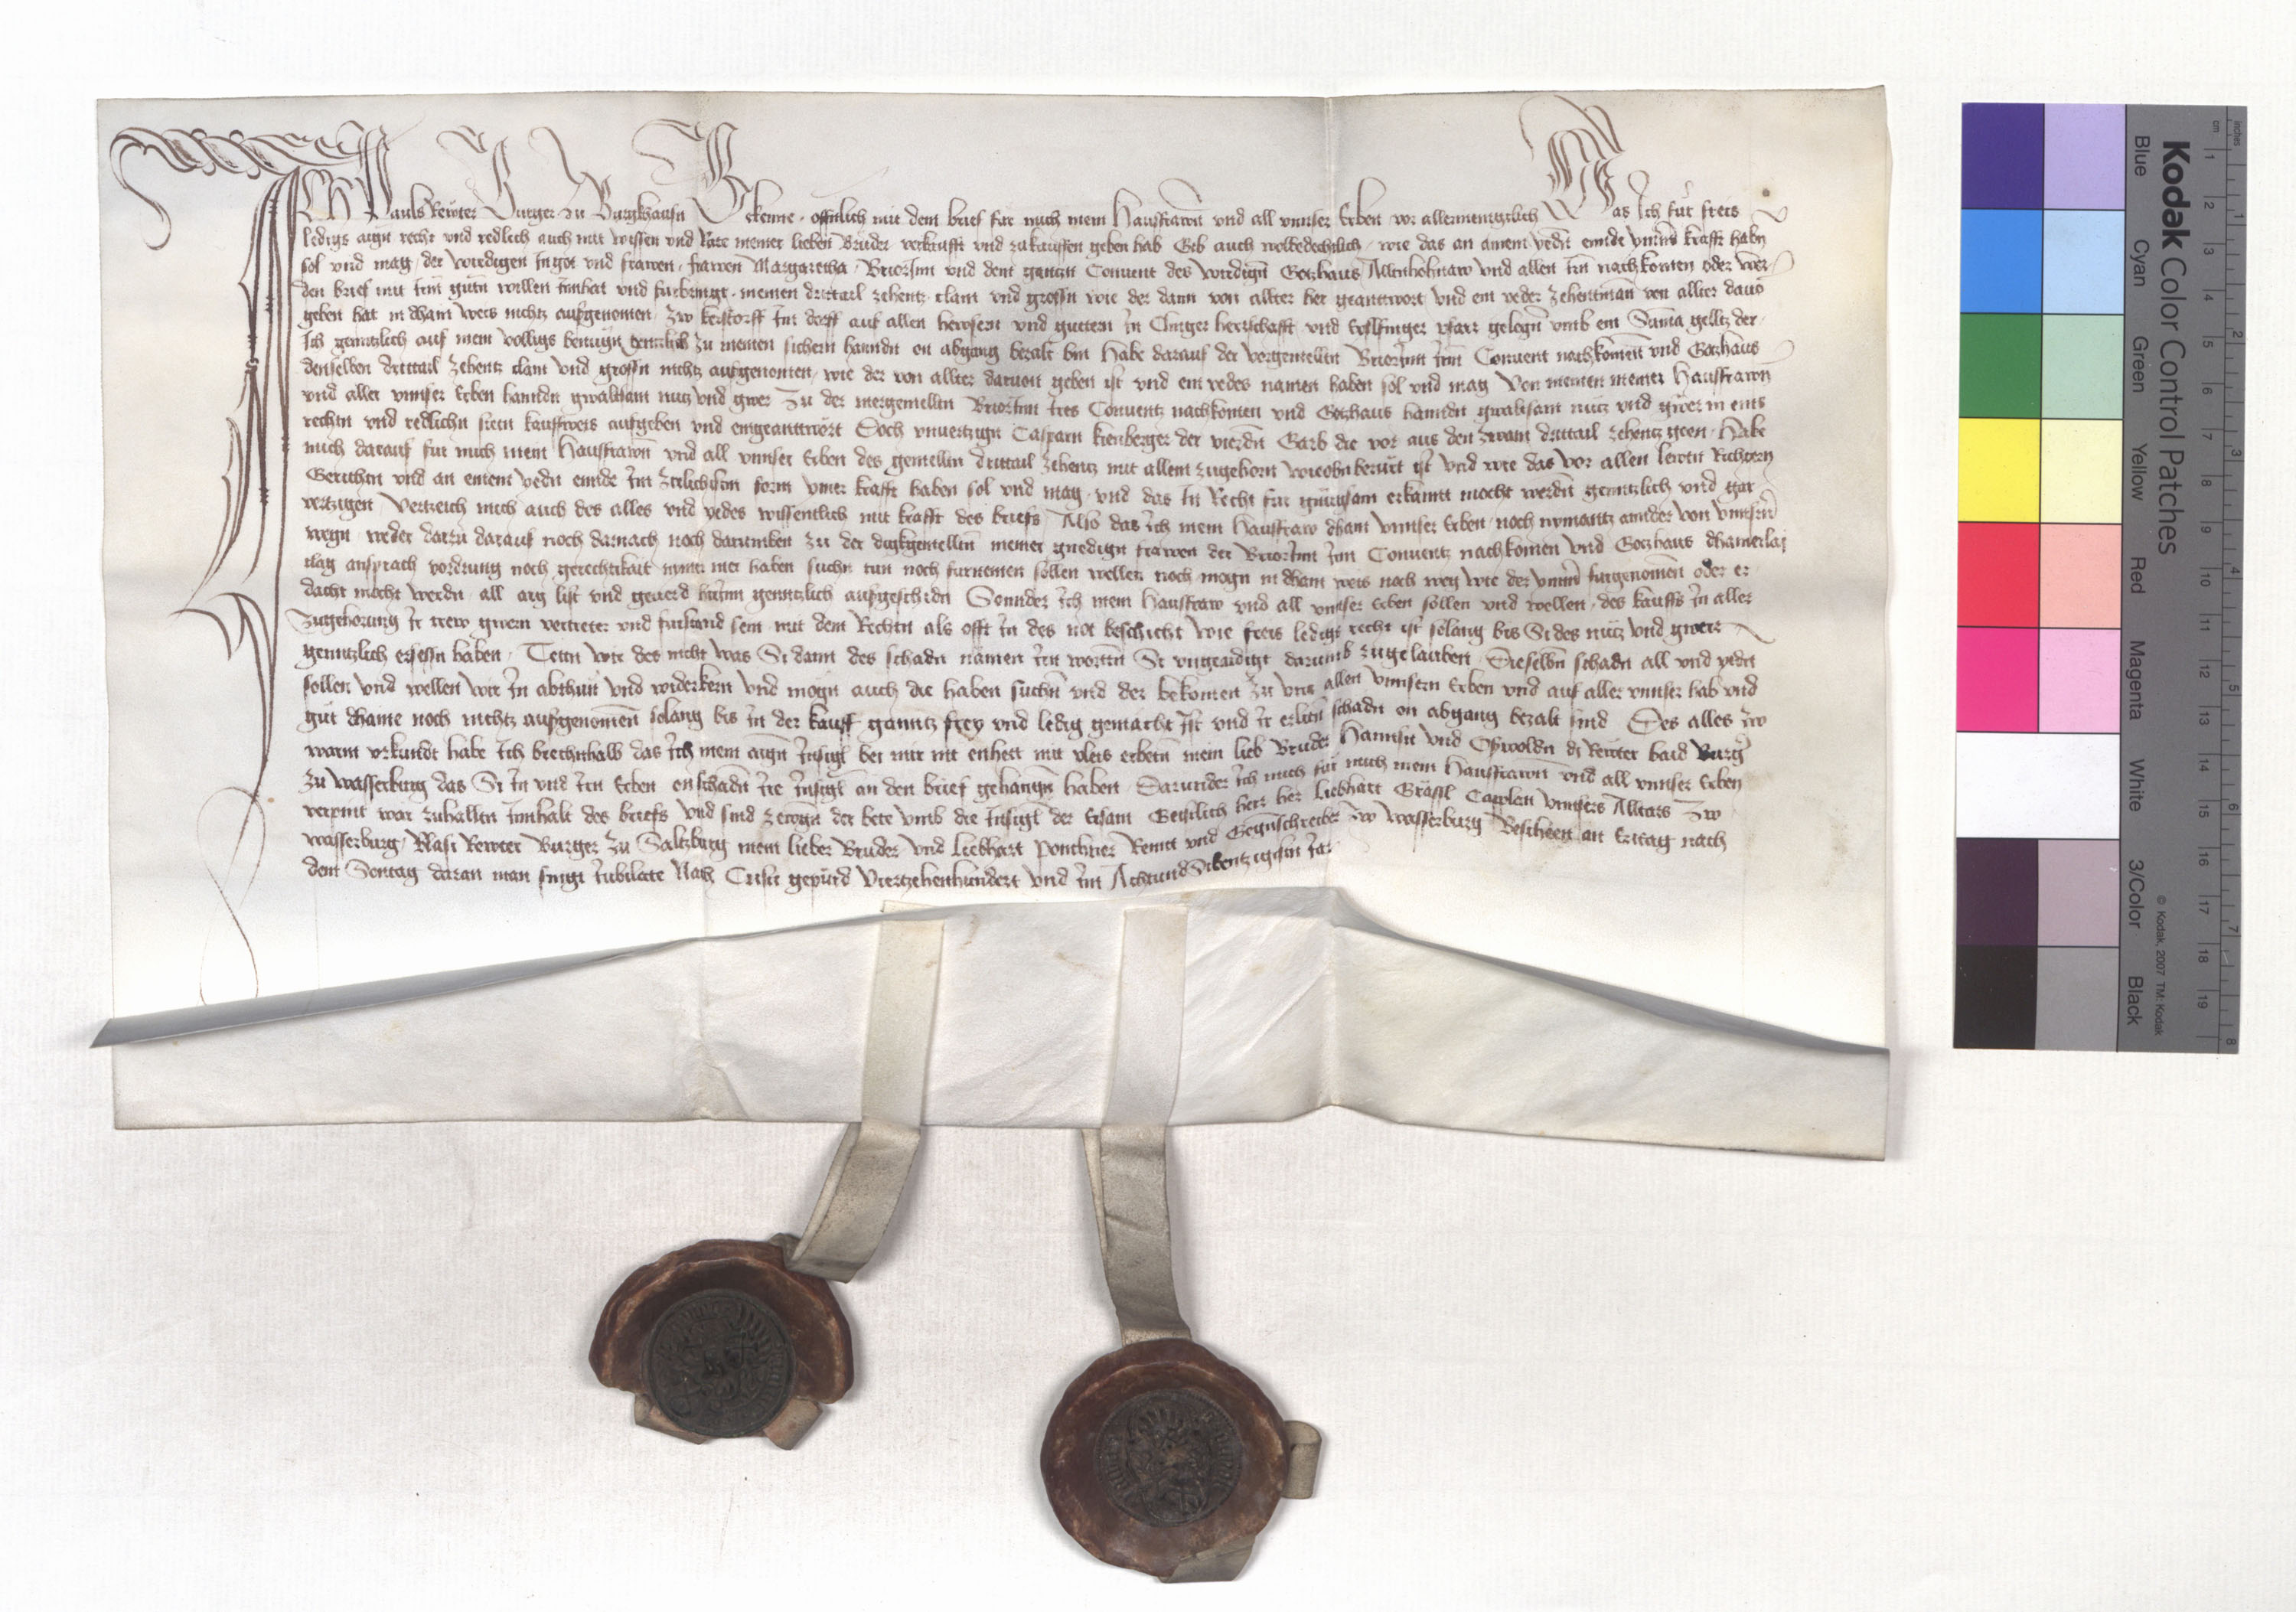 ICH Pauls Rewter Burger zu Burgkhausn Bekenne offenlich mit dem brief fur mich mein Hausfrawn vnd all vnnser Erben vor allermenigclich Das Ich fur freis
ledigs aign recht vnd redlich auch mit wissen vnd Rate meiner lieben Brüder verkaufft vnd zukauffen geben hab Gib auch wolbedechtlich wie das an ainem yedn ennde krafft habn
sol vnd mag der wirdigen In got vnd frawen frawen Margaretha Briorinn vnd dem gantzn Conuent des wirdign Gotzhaus Alltenhohnaw vnd allen Irn nachkomen oder wer
den brief mit irm gutn willen innhat vnd furbringt meinen drittail zehentz clain vnd grossn wie der dann von allter her geantwort vnd ein yeder zehentman von allter dauo
geben hat in dhain weis nichtz aufgenomen zw kerstorff Im dorff auf allen hewsern vnd guttern In Clinger herrschafft vnd pfarr gelegn vmb ein Suma gelltz der
Ich genntzlich auf mein volligs benugn zu meinen sichern hanndn on abgang bezalt bin Habe darauf der vorgemellten Briorinn Irm Conuent nachkomen vnd Gotzhaus
denselben drittail zehentz clain vnd grossn nichtz aufgenomen wie der von allter dauon geben ist vnd ein yedes namen haben sol vnd mag Von meinen meiner Hausfrawn
vnd aller vnnser Erben hanndn gwaltsam nutz vnd gwer Zu der mergemellten Briorinn irs Conuentz nachkomen vnd Gotzhaus hanndn gwaltsam nutz vnd gwer in eins
rechtn vnd redlichn stetn kauffweis aufgeben vnd eingeanttwort Doch vnuertzign Casparn kienberger der vierdn Garb die vor aus den zwain drittail zehentz geen Habe
mich darauf fur mich mein Hausfrawn vnd all vnnser Erben des gemellten drittail zehentz mit allem zugehorn wieobnberurt ist vnd wie das vor allen lewtn Richtern
Gerichtn vnd an einem yedn ennde Im form krafft haben sol vnd mag vnd das In Recht fur gnugsam erkannt mocht werdn genntzlich vnd gar
vertzigen Vertzeich mich auch des alles vnd yedes wissentlich mit krafft des briefs Also das Ich mein Hausfraw dhain vnnser Erben noch nymantz annder von vnnsern
wegn weder darzu darauf noch darnach noch darumben zu der digkgemellten meiner gnedign frawen der Briorinn Irm Conuentz nachkomen vnd Gotzhaus dhainerlaj
clag ansprach vordrung noch gerechtikait nymer mer haben suchn tun noch furnemen sollen wellen noch mogn in dhain weis noch weg wie der furgenomen oder er
dacht mocht werdn all arg list vnd geuerd hirinn genntzlich aufgeschidn Sonnder Ich mein Hausfraw vnd all vnnser Erben sollen vnd wellen des kauffs In aller
zugehorung Ir trew gwern vertreter vnd furstand sein mit dem Rechtn als offt In des not beschicht wie freis ledigs recht ist solang bis Si des nutz vnd gwer
genntzlich ersessn haben Tetn wir des nicht was Si dann des schadn namen Irn wortten Si vngeaidigt darumb zugelauben Dieselbn schadn all vnd yedn
sollen vnd wellen wir In abthun vnd widerkern vnd mogn auch die haben suchn vnd der bekomen zu vns allen vnnsern Erben vnd auf aller vnnser hab vnd
gut dhaine noch nichtz aufgenomen solang bis In der kauff ganntz frey vnd ledig gemacht ist vnd Ir erlitn schadn on abgang bezalt sind Des alles zw
warm vrkundt habe Ich brechnhalb das Ich mein aign Insigl bei mir nit enhett mit vleis erbetn mein lieb Brüder Hannsn vnd Oswoldn di Rewter baid Burger
zu wasserburg das Si In vnd Irn Erben on schadn Ire Insigl an den brief gehangn haben Darunder Ich mich fur mich mein Hausfrawn vnd all vnnser Erben
verpint war zuhalltn Innhalt des briefs Vnd sind zewgn der bete vmb die Insigl der Ersam Geistlich herr her Liebhart Gräsil Caplan vnnsers Alltars zw
wasserburg Blasi Rewter Burger zu Saltzburg mein lieber Bruder vnd Liebhart Ponchner Rennt vnd Gegnschreiber zw wasserburg Bescheen an Eritag nach
dem Sontag daran man singt Jubilate Nach Cristi gepurd Viertzehenhundert vnd Im Achtundsibentzigistn Jar
Kodak Color Control Patches
Blue Cyan Green Yellow Red Magenta White 3/Color Black
© Kodak, 2007 TM: Kodak
cm 1 2 3 4 5 6 7 8 9 10 11 12 13 14 15 16 17 18 19
inches 1 2 3 4 5 6 7 8